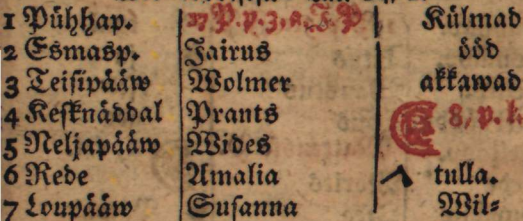 1 Pühhap. 27 P. p. 3, a. J. P Külmad
2 Esmasp. Jairus ööd
3 Teisipääw Wolmer akkawad
4 Kesknäddal Prants 8, p. l.
5 Neljapääw Wides
6 Rede Amalia tulla.
7 Loupääw Susanna Wil-